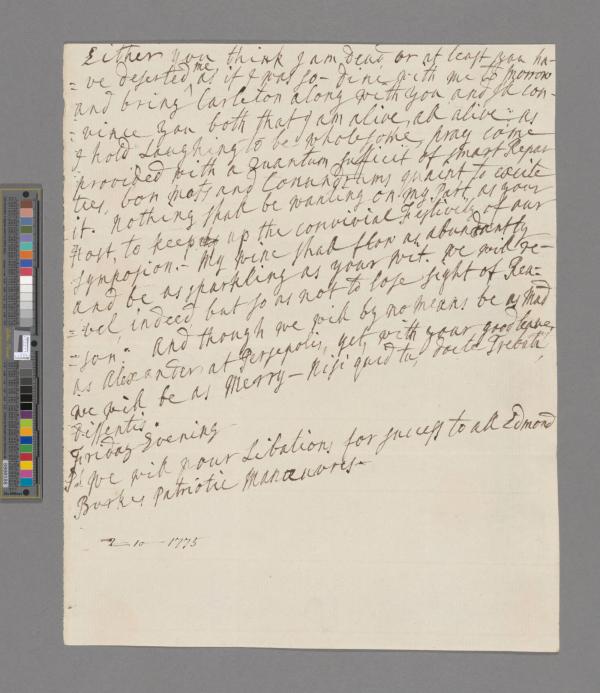 Either you think I am dead or at least you ha-
=ve deserted me as if I was so - dine with me to morrow
and bring Carleton along with you and I'll con-
=vince you both that I am alive, all alive: as
I hold Laughing to be wholesome, pray come
provided with a quantum sufficit of smart Repar
ties, bon mots and Conundrums quaint to excite
it. Nothing shall be wanting on my part, as your
Host, to keep up the convivial Festivity of our
Symposion. - My wine shall flow as abundantly
and be as sparkling as your wit. We will re-
=vel, indeed, but so as not to lose sight of Rea-
=son. And though we will by no means be as mad
as Alexander at Persepolis, yet, with your good leave,
we will be as Merry - Nisi quid tu, docte Trebati,
dissentis.
Friday Evening
Ps. We will pour Libations for success to all Edmond
Burkes Patriotic Manœuvres -
10 - 1775